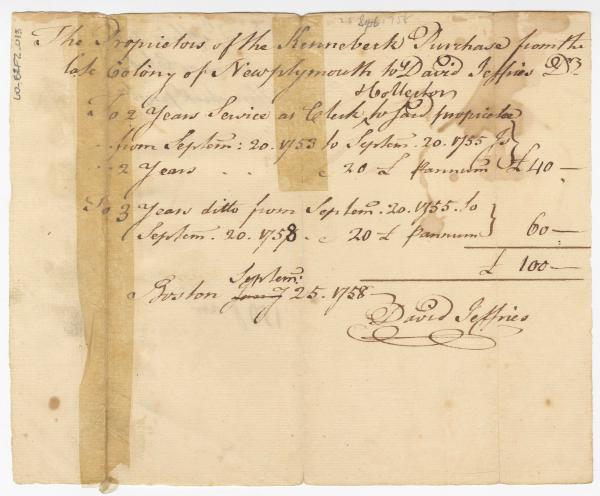 25 Sept. 1758
The Proprietors of the Kennebeck Purchase from the
late Colony of Newplymouth to David Jeffries Dr.
& Collector
To 2 Years Service as Clerk to said proprietee
from Septem: 20. 1753 to Septem. 20. 1755 Is
2 Years . . @ 20 £ pannum £ 40 —
To 3 Years ditto from Septem. 20. 1755. to
Septem. 20. 1758 - @ 20 £ pannum 60 —
£ 100 —
Septem:
Boston 25. 1758 —
David Jeffries